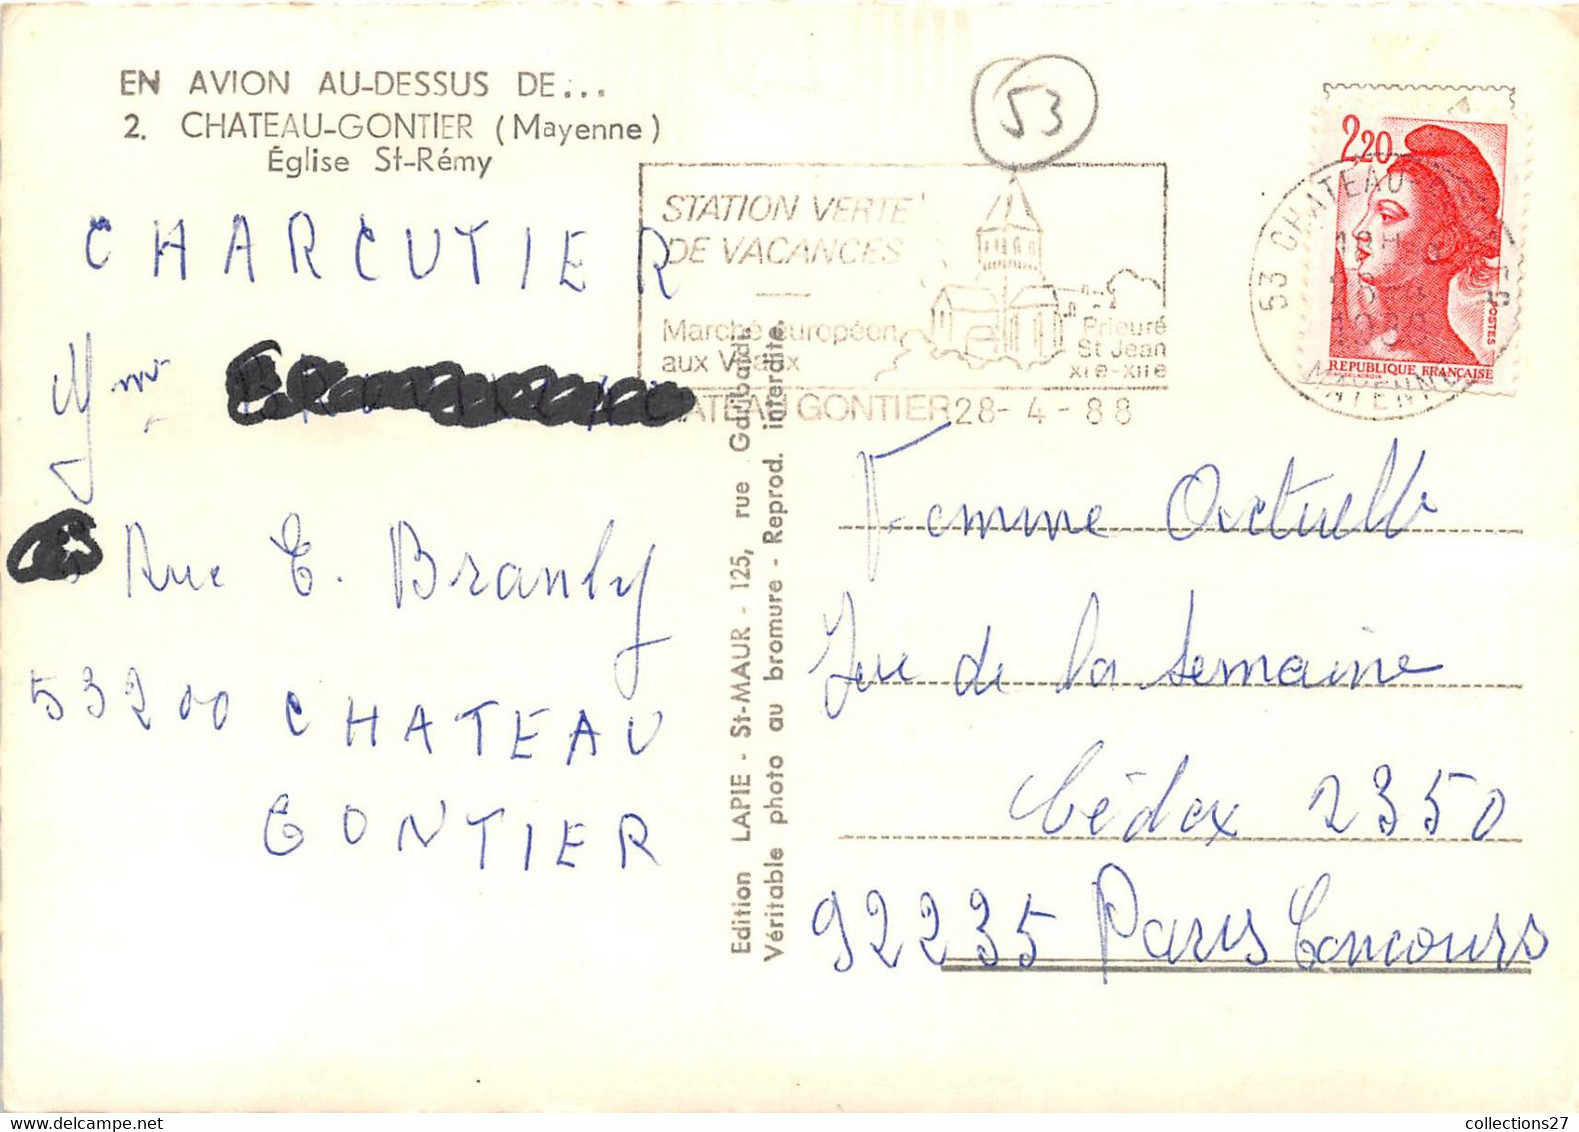 EN AVION AU-DESSUS DE...
2. CHATEAU-GONTIER (Mayenne)
Église St-Rémy
53
STATION VERTE
DE VACANCES
Marché européen
aux Veaux
Prieuré
St Jean
XIe-XIIe
CHATEAU GONTIER 28-4-88
2,20
POSTES
REPUBLIQUE FRANÇAISE
53 CHATEAU
MAYENNE
CHARCUTIER
Mme
Rue E. Branly
53200 CHATEAU
GONTIER
Edition LAPIE - St-MAUR - 125, rue Garibaldi.
Véritable photo au bromure - Reprod. interdite.
Femme Actuelle
Jeu de la semaine
Cédex 2350
92235 Paris Concours
collections27